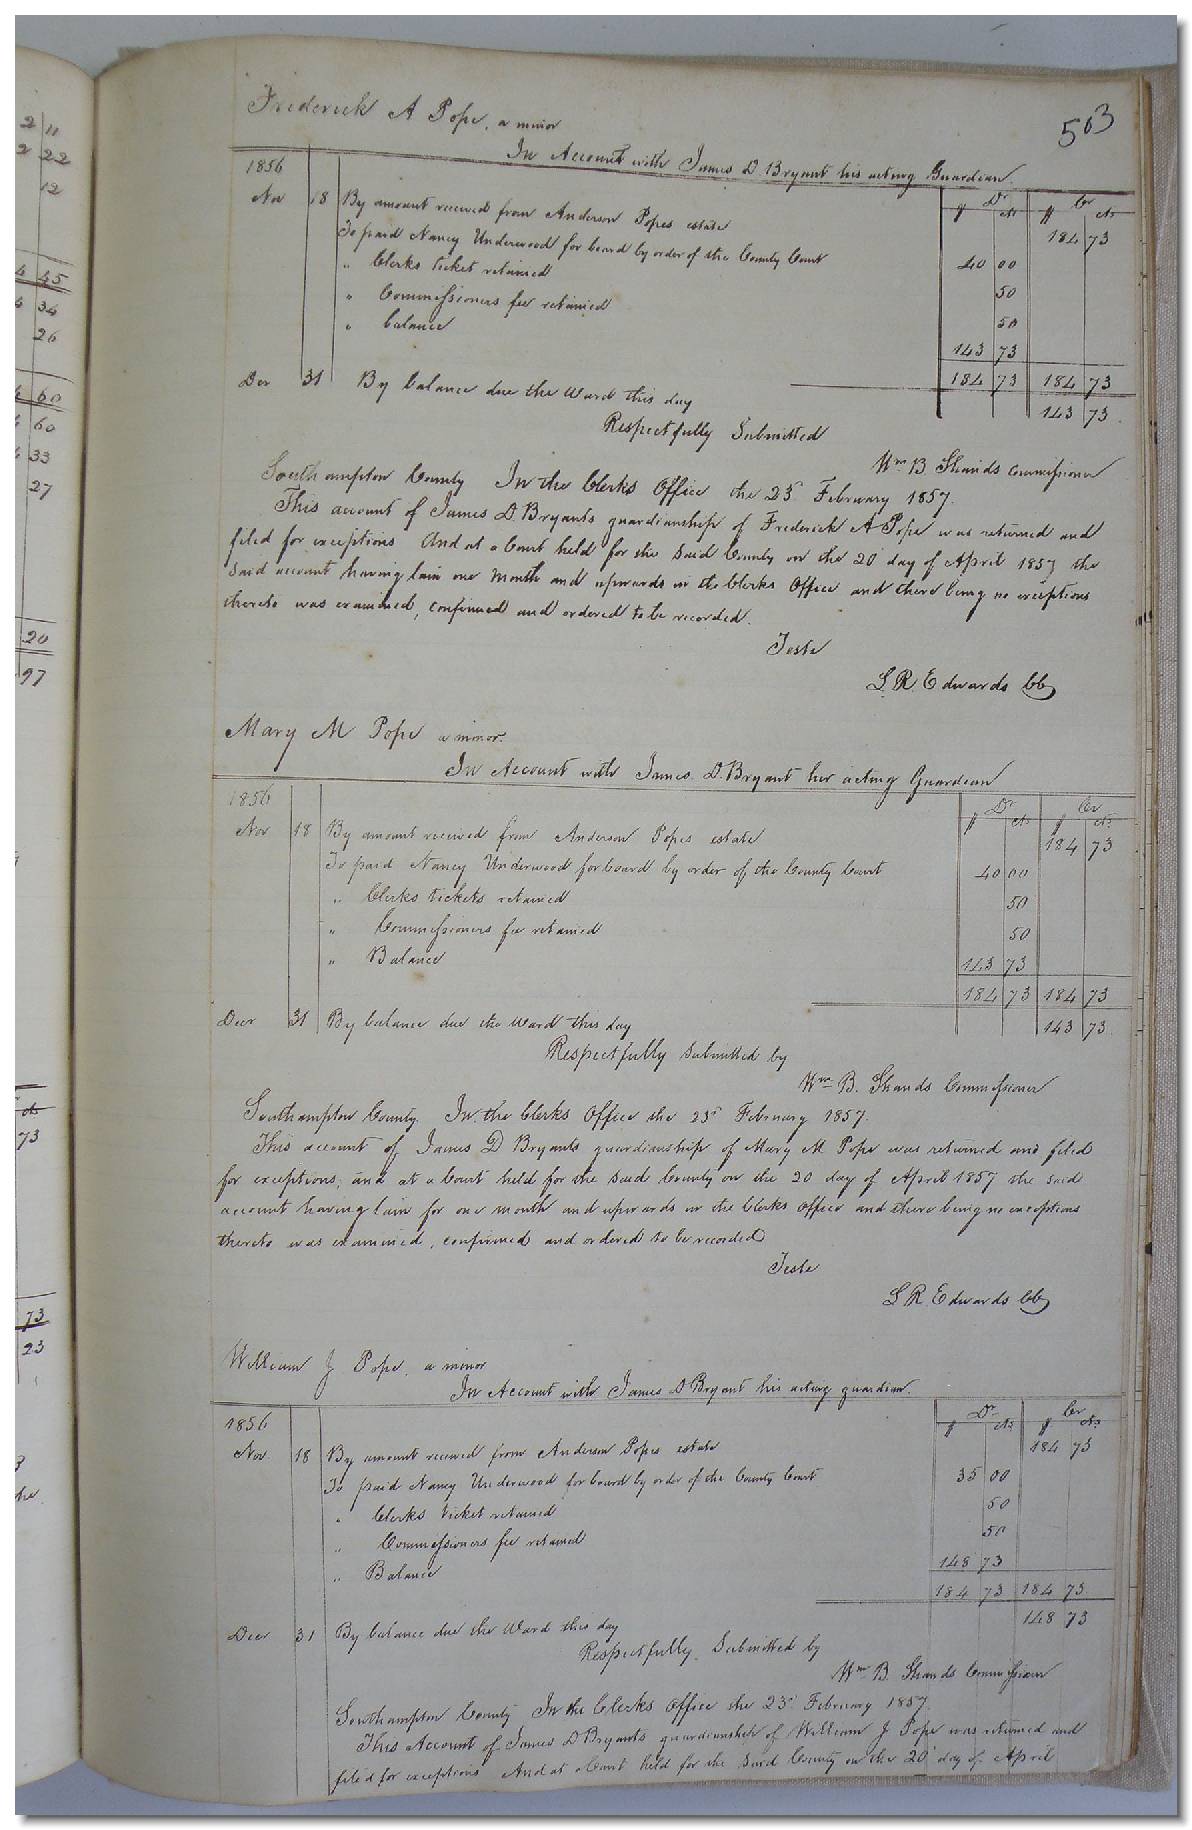 2 11
2 22
12
4 45
4 34
26
4 60
4 60
4 33
27
20
97
cts
73
73
23
503
Frederick A Pope, a minor
In Account with James D. Bryant his acting Guardian.
1856 Dr Cr
$ cts $ cts
Nov 18 By amount received from Anderson Popes estate 184 73
To paid Nancy Underwood for board by order of the County Court 40 00
" Clerks ticket retained 50
" Commissioners fee retained 50
" balance 143 73
184 73 184 73
Decr 31 By balance due the Ward this day 143 73
Respectfully Submitted
Wm B. Shands Commissioner
Southampton County In the Clerks Office the 23d February 1857.
This account of James D. Bryants guardianship of Frederick A Pope was returned and
filed for exceptions And at a Court held for the said County on the 20 day of April 1857 the
said account having lain one month and upwards in the Clerks Office and there being no exceptions
thereto was examined, confirmed and ordered to be recorded.
Teste
L. R. Edwards CC
Mary M Pope a minor.
In Account with James D. Bryant her acting Guardian
1856 Dr Cr
$ cts $ cts
Nov 18 By amount received from Anderson Popes estate 184 73
To paid Nancy Underwood for board by order of the County Court 40 00
" Clerks tickets retained 50
" Commissioners fee retained 50
" Balance 143 73
184 73 184 73
Decr 31 By balance due the Ward this day 143 73
Respectfully submitted by
Wm B. Shands Commissioner
Southampton County. In the Clerks Office the 23d February 1857.
This account of James D Bryants guardianship of Mary M Pope was returned and filed
for exceptions; and at a Court held for the said County on the 20 day of April 1857 the said
account having lain for one month and upwards in the Clerks Office and there being no exceptions
thereto was examined, confirmed and ordered to be recorded
Teste
L R. Edwards CC
William J Pope, a minor
In Account with James D Bryant his acting guardian.
1856 Dr Cr
$ cts $ cts
Nov. 18 By amount received from Anderson Popes estate 184 73
To paid Nancy Underwood for board by order of the County Court 35 00
" Clerks ticket retained 50
" Commissioners fee retained 50
" Balance 148 73
184 73 184 73
Decr 31 By balance due the Ward this day 148 73
Respectfully, Submitted by
Wm B. Shands Commissioner
Southampton County In the Clerks Office the 23d February 1857.
This Account of James D Bryants guardianship of William J Pope was returned and
filed for exceptions And at a Court held for the said County on the 20 day of April